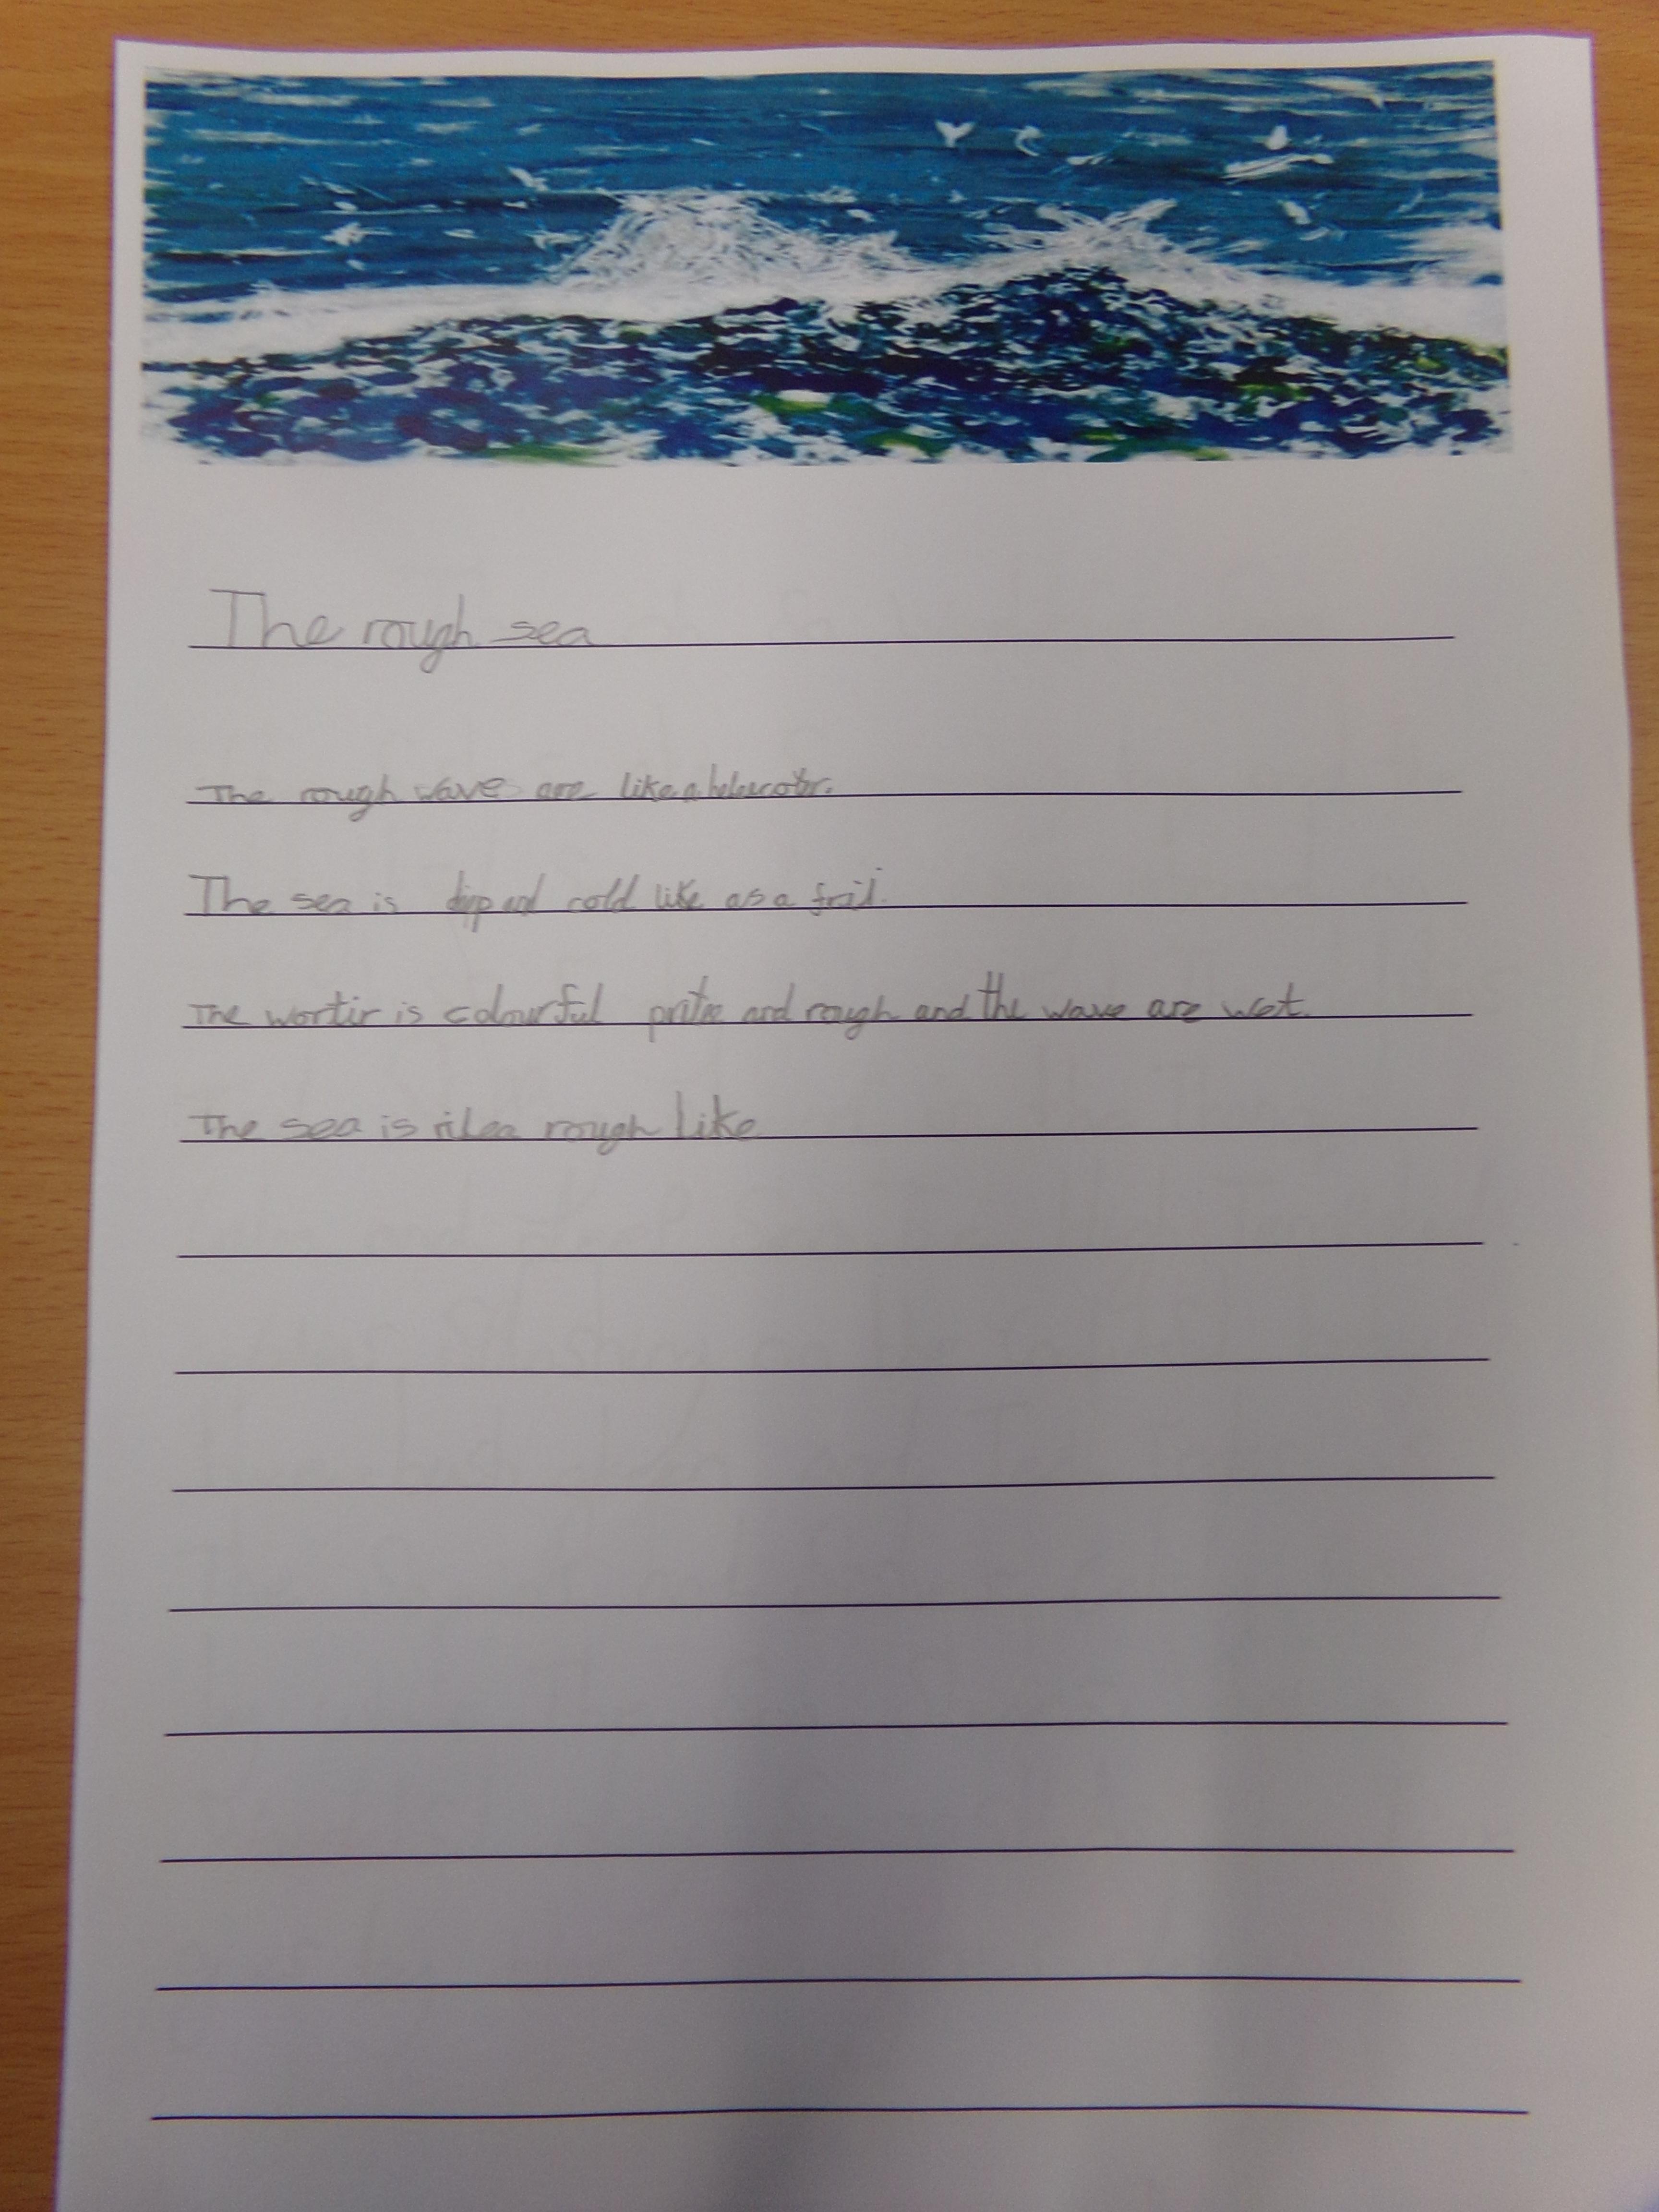 The rough sea
The rough wave are like a
The sea is and cold like as a
The wortir is colourful and rough and the wave are wet.
The sea is rilea rough like